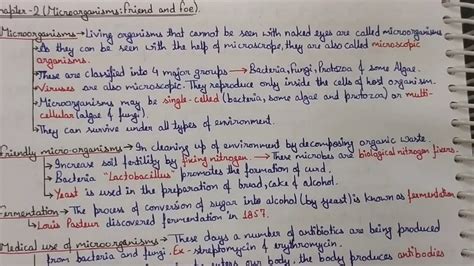 Chapter-2 (Microorganisms: Friend and Foe).
Microorganisms → Living organisms that cannot be seen with naked eyes are called microorganisms
→ As they can be seen with the help of microscope, they are also called microscopic
organisms.
→ These are classified into 4 major groups → Bacteria, Fungi, Protozoa & some Algae.
→ Viruses are also microscopic. They reproduce only inside the cells of host organism.
→ Microorganisms may be single-celled (bacteria, some algae and protozoa) or multi-
cellular (algae & fungi).
→ They can survive under all types of environment.
Friendly micro-organisms → In cleaning up of environment by decomposing organic waste
→ Increase soil fertility by fixing nitrogen. → These microbes are biological nitrogen fixers.
→ Bacteria "Lactobacillus" promotes the formation of curd.
→ Yeast is used in the preparation of bread, cake & alcohol.
Fermentation → The process of conversion of sugar into alcohol (by yeast) is known as fermentation
→ Loris Pasteur discovered fermentation in 1857.
Medical use of microorganisms → These days a number of antibiotics are being produced
from bacteria and fungi. Ex - streptomycin & erythromycin.
enters our body, the body produces antibodies